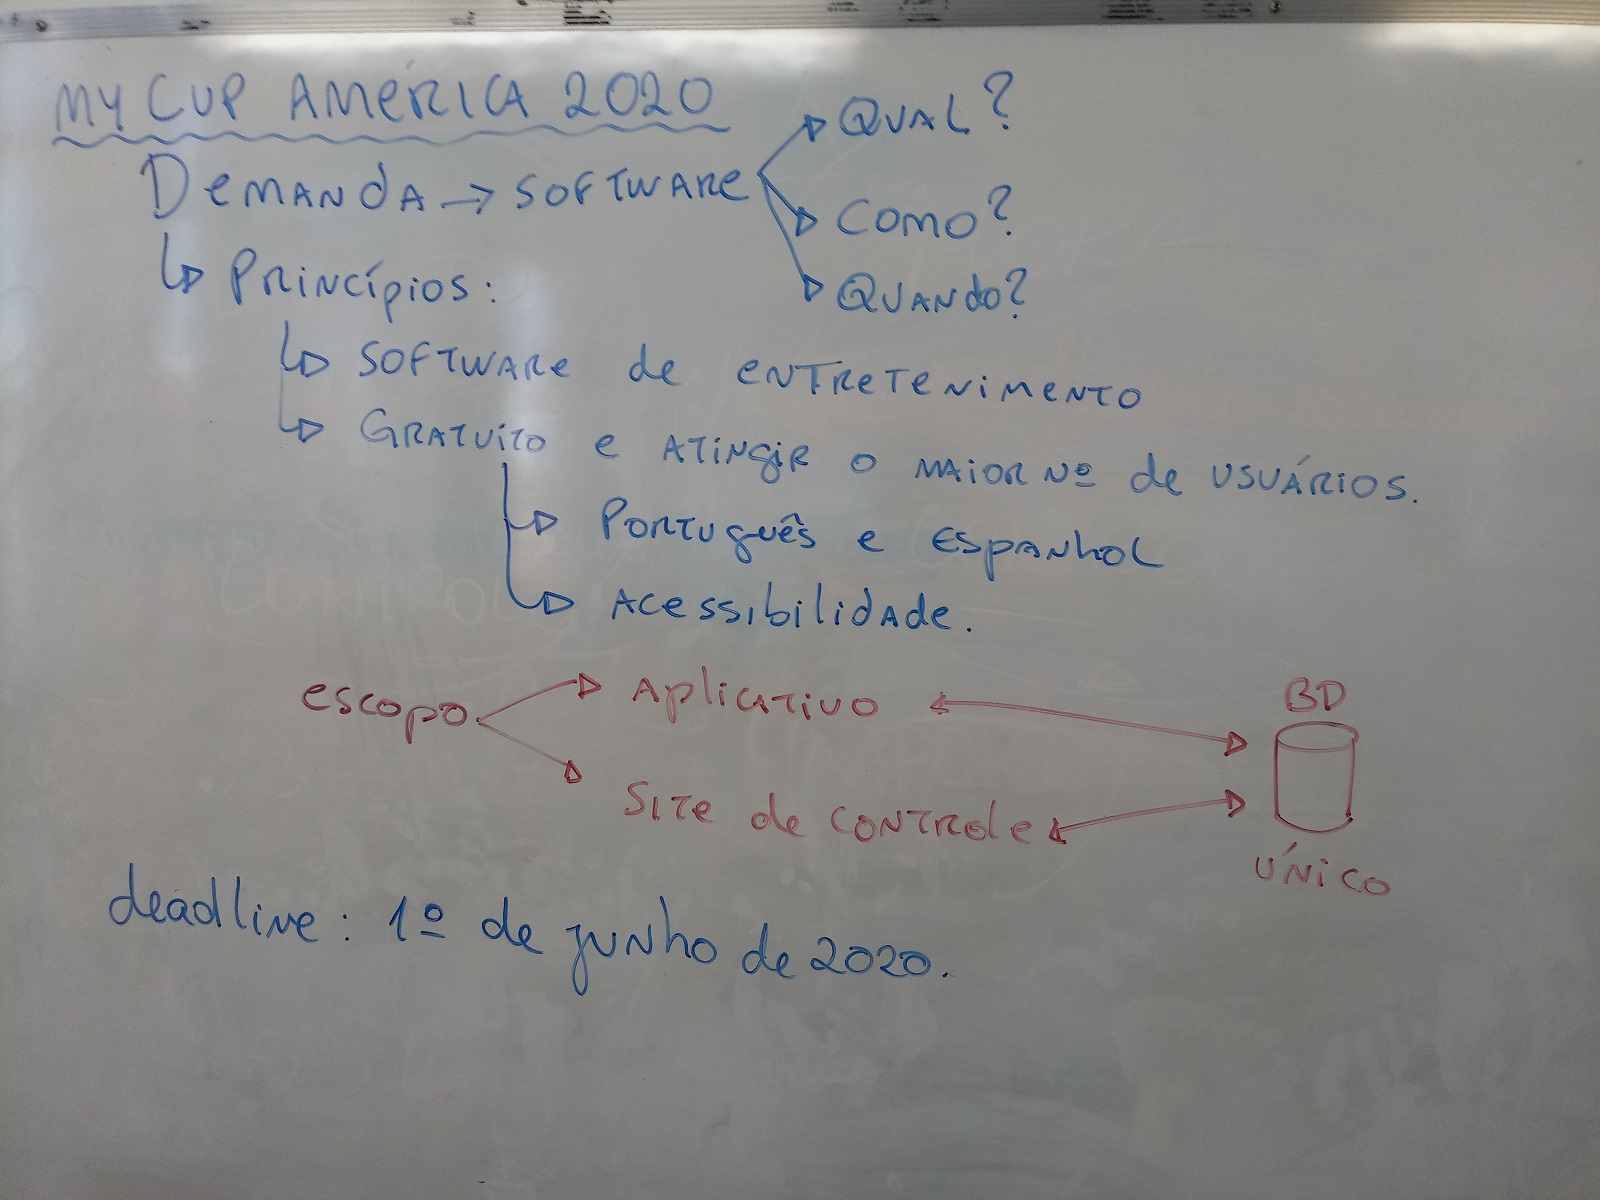 MY CUP AMÉRICA 2020
Demanda → software
Qual?
Como?
Quando?
Princípios:
software de entretenimento
Gratuito e atingir o maior nº de usuários.
Português e Espanhol
Acessibilidade.
escopo
Aplicativo
Site de controle
BD
único
deadline: 1º de junho de 2020.